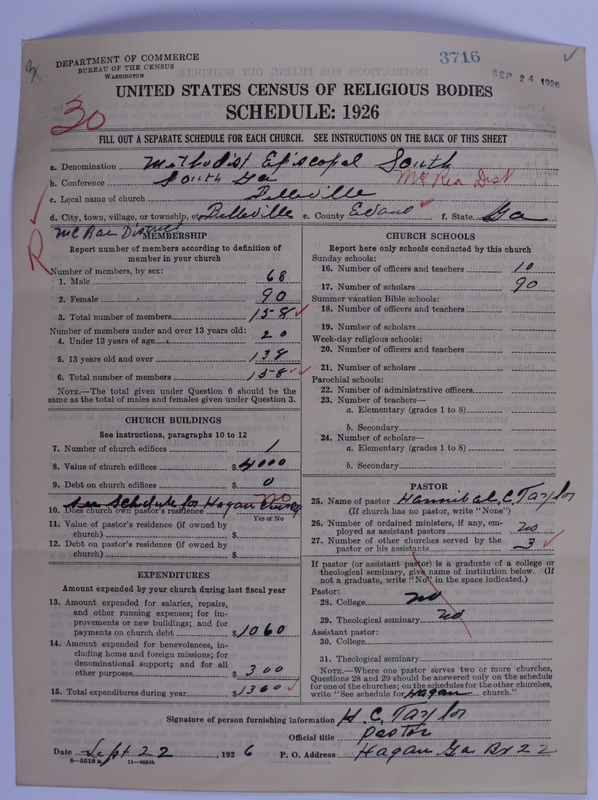 DEPARTMENT OF COMMERCE
BUREAU OF THE CENSUS
WASHINGTON
3716
SEP 24 1926
UNITED STATES CENSUS OF RELIGIOUS BODIES
SCHEDULE: 1926
30
FILL OUT A SEPARATE SCHEDULE FOR EACH CHURCH. SEE INSTRUCTIONS ON THE BACK OF THIS SHEET
a. Denomination Methodist Episcopal South
b. Conference South Ga McRea Dist
c. Local name of church Belleville
d. City, town, village, or township, etc. Belleville e. County Evans f. State Ga
R
McRae District
MEMBERSHIP
Report number of members according to definition of
member in your church
Number of members, by sex:
1. Male 68
2. Female 90
3. Total number of members 158
Number of members under and over 13 years old:
4. Under 13 years of age 20
5. 13 years old and over 138
6. Total number of members 158
NOTE.—The total given under Question 6 should be the
same as the total of males and females given under Question 3.
CHURCH BUILDINGS
See instructions, paragraphs 10 to 12
7. Number of church edifices 1
8. Value of church edifices $4000
9. Debt on church edifices $ 0
See Schedule for Hagan Church no
10. Does church own pastor's residence
Yes or No
11. Value of pastor's residence (if owned by
church) $
12. Debt on pastor's residence (if owned by
church) $
EXPENDITURES
Amount expended by your church during last fiscal year
13. Amount expended for salaries, repairs,
and other running expenses; for im-
provements or new buildings; and for
payments on church debt $1060
14. Amount expended for benevolences, in-
cluding home and foreign missions; for
denominational support; and for all
other purposes $ 300
15. Total expenditures during year $1360
CHURCH SCHOOLS
Report here only schools conducted by this church
Sunday schools:
16. Number of officers and teachers 10
17. Number of scholars 90
Summer vacation Bible schools:
18. Number of officers and teachers
19. Number of scholars
Week-day religious schools:
20. Number of officers and teachers
21. Number of scholars
Parochial schools:
22. Number of administrative officers
23. Number of teachers—
a. Elementary (grades 1 to 8)
b. Secondary
24. Number of scholars—
a. Elementary (grades 1 to 8)
b. Secondary
PASTOR
25. Name of pastor Hannibal C. Taylor
(If church has no pastor, write "None")
26. Number of ordained ministers, if any, em-
ployed as assistant pastors no
27. Number of other churches served by the
pastor or his assistants 3
If pastor (or assistant pastor) is a graduate of a college or
theological seminary, give name of institution below. (If
not a graduate, write "No" in the space indicated.)
Pastor:
28. College no
29. Theological seminary no
Assistant pastor:
30. College
31. Theological seminary
NOTE.—Where one pastor serves two or more churches,
Questions 28 and 29 should be answered only on the schedule
for one of the churches; on the schedules for the other churches,
write "See schedule for Hagan church."
Signature of person furnishing information H. C. Taylor
Official title Pastor
Date Sept 22 1926 P. O. Address Hagan Ga Bx 22